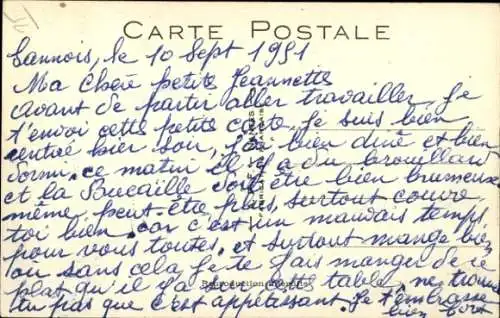 CARTE POSTALE
Sannois, le 10 Sept 1951
Ma Chère petite Jeannette
avant de partir aller travailler, je
t'envoi cette petite carte, je suis bien
rentré hier soir, j'ai bien diné et bien
dormi, ce matin il y a du brouillard
et la Bucaille doit être bien brumeuse
même peut-être plus, surtout couvre
toi bien, car c'est un mauvais temps
pour vous toutes, et surtout mange bien
ou sans cela, je te fais manger de ce
plat qu'il y a sur cette table, ne trouve
tu pas que c'est appétissant. Je t'embrasse
bien fort
Reproduction